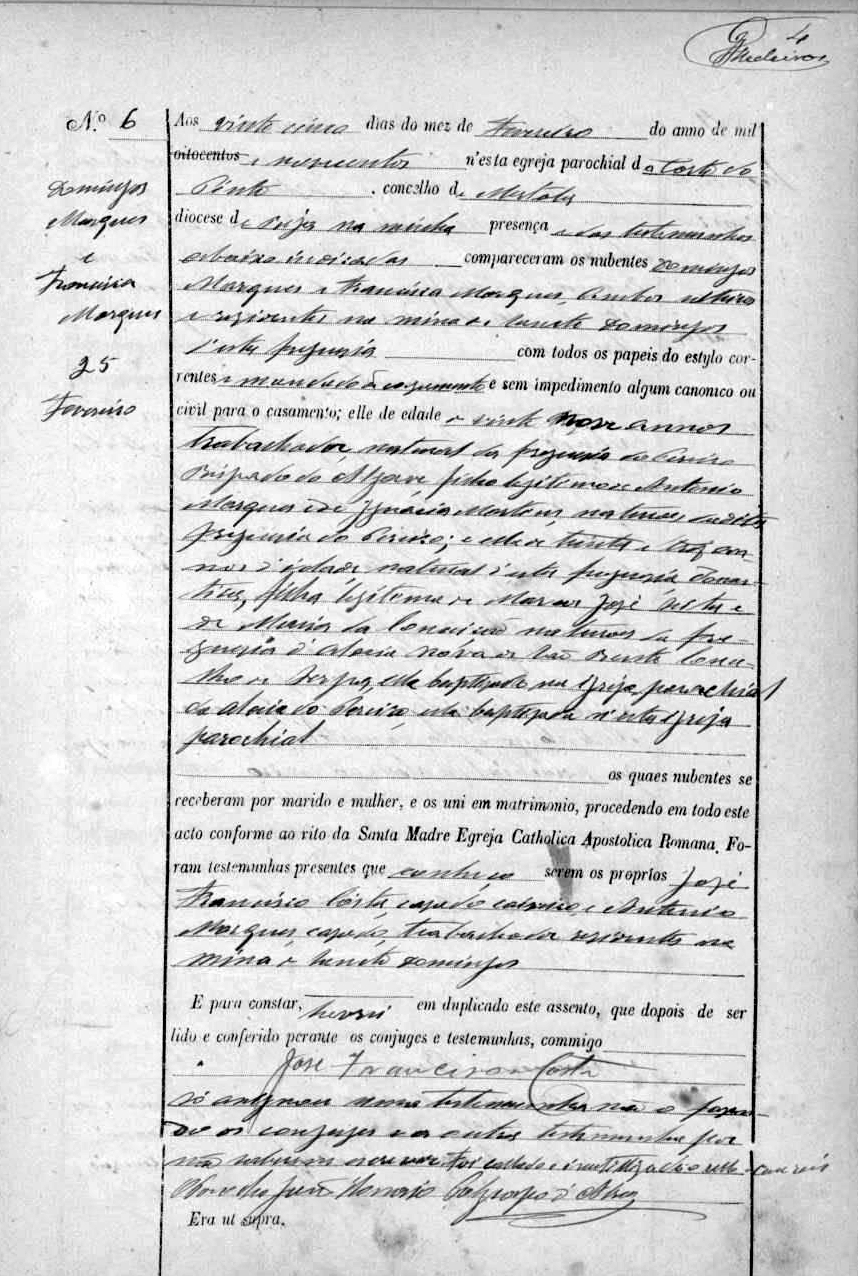 4
Medeiros
N.º 6
Domingos
Marques
e
Francisca
Marques
25
Fevereiro
Aos vinte cinco dias do mez de Fevereiro do anno de mil
oitocentos e novecentos n'esta egreja parochial da Corte do
Pinto, concelho de Mertola
diocese de Beja na minha presença e das testemunhas
abaixo indicadas compareceram os nubentes Domingos
Marques e Francisca Marques, ambos solteiros
e residentes na mina de Sancto Domingos
d'esta freguesia com todos os papeis do estylo cor-
rentes e mandado de casamento e sem impedimento algum canonico ou
civil para o casamento; elle de edade de vinte nove annos
trabalhador, natural da freguesia do Pereiro
Bispado do Algarve filho legitimo de Antonio
Marques e de Ignacia Martins, naturaes da dita
freguesia do Pereiro; e ella de trinta e tres an-
nos d'idade natural d'esta freguesia
filha legitima de Marcos José e
de Maria da Conceição naturaes da fre-
guesia d'Aldeia Nova de São Bento Conce-
lho de Serpa, elle baptisado na Egreja parochial
da aldeia do Pereiro, ella baptisada n'esta Egreja
parochial
os quaes nubentes se
receberam por marido e mulher, e os uni em matrimonio, procedendo em todo este
acto conforme ao rito da Santa Madre Egreja Catholica Apostolica Romana. Fo-
ram testemunhas presentes que conheço serem os proprios José
Francisco Costa, casado, e Antonio
Marques, casado, trabalhador residentes na
mina de Sancto Domingos
E para constar, lavrei em duplicado este assento, que depois de ser
lido e conferido perante os conjuges e testemunhas, commigo
José Francisco Costa
só assignou uma testemunha não o fazen-
do os conjuges e a outra testemunha por
não saberem escrever. Foi collado e inutilizado o sello
Era ut supra.